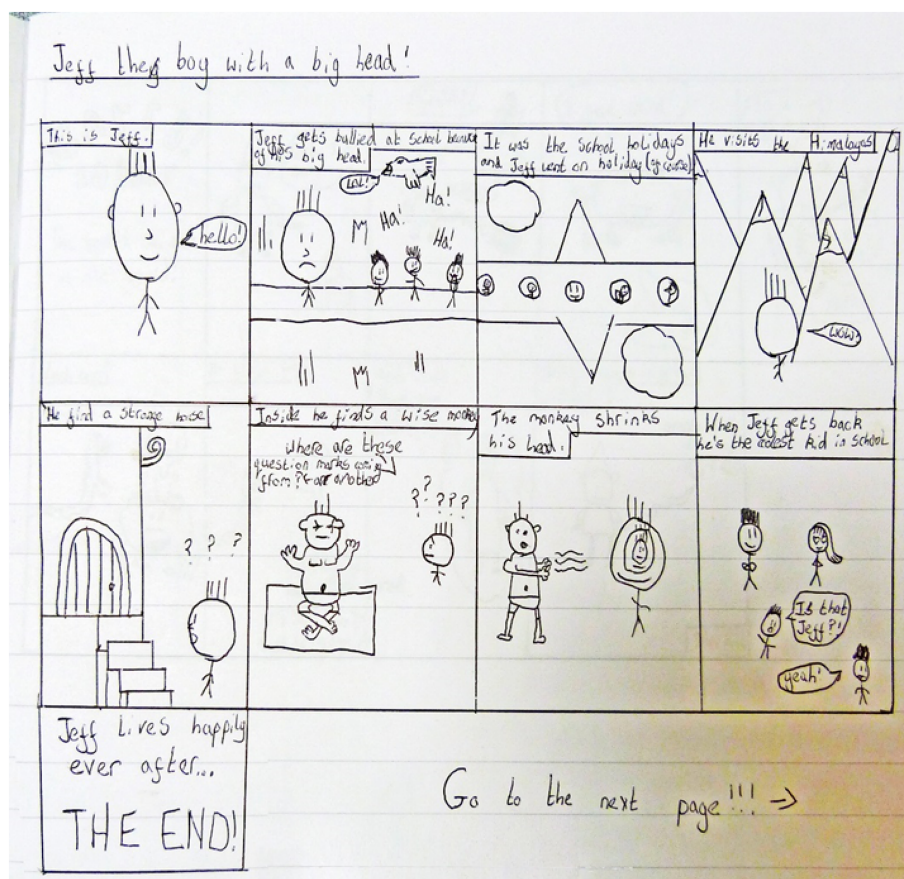 Jeff the boy with a big head!
This is Jeff.
hello!
Jeff gets bullied at School because
of his big head.
LOL!
Ha!
Ha!
Ha!
It was the school holidays
and Jeff went on holiday (of course)
He visits the Himalayas
WOW!
He find a strange house!
? ? ?
Inside he finds a wise monkey
Where are these
question marks coming
from ?
? ? ? ? ?
The monkey shrinks
his head.
When Jeff gets back
he's the coolest kid in school
Is that
Jeff?!
yeah!
Jeff Lives happily
ever after...
THE END!
Go to the next page!!! →